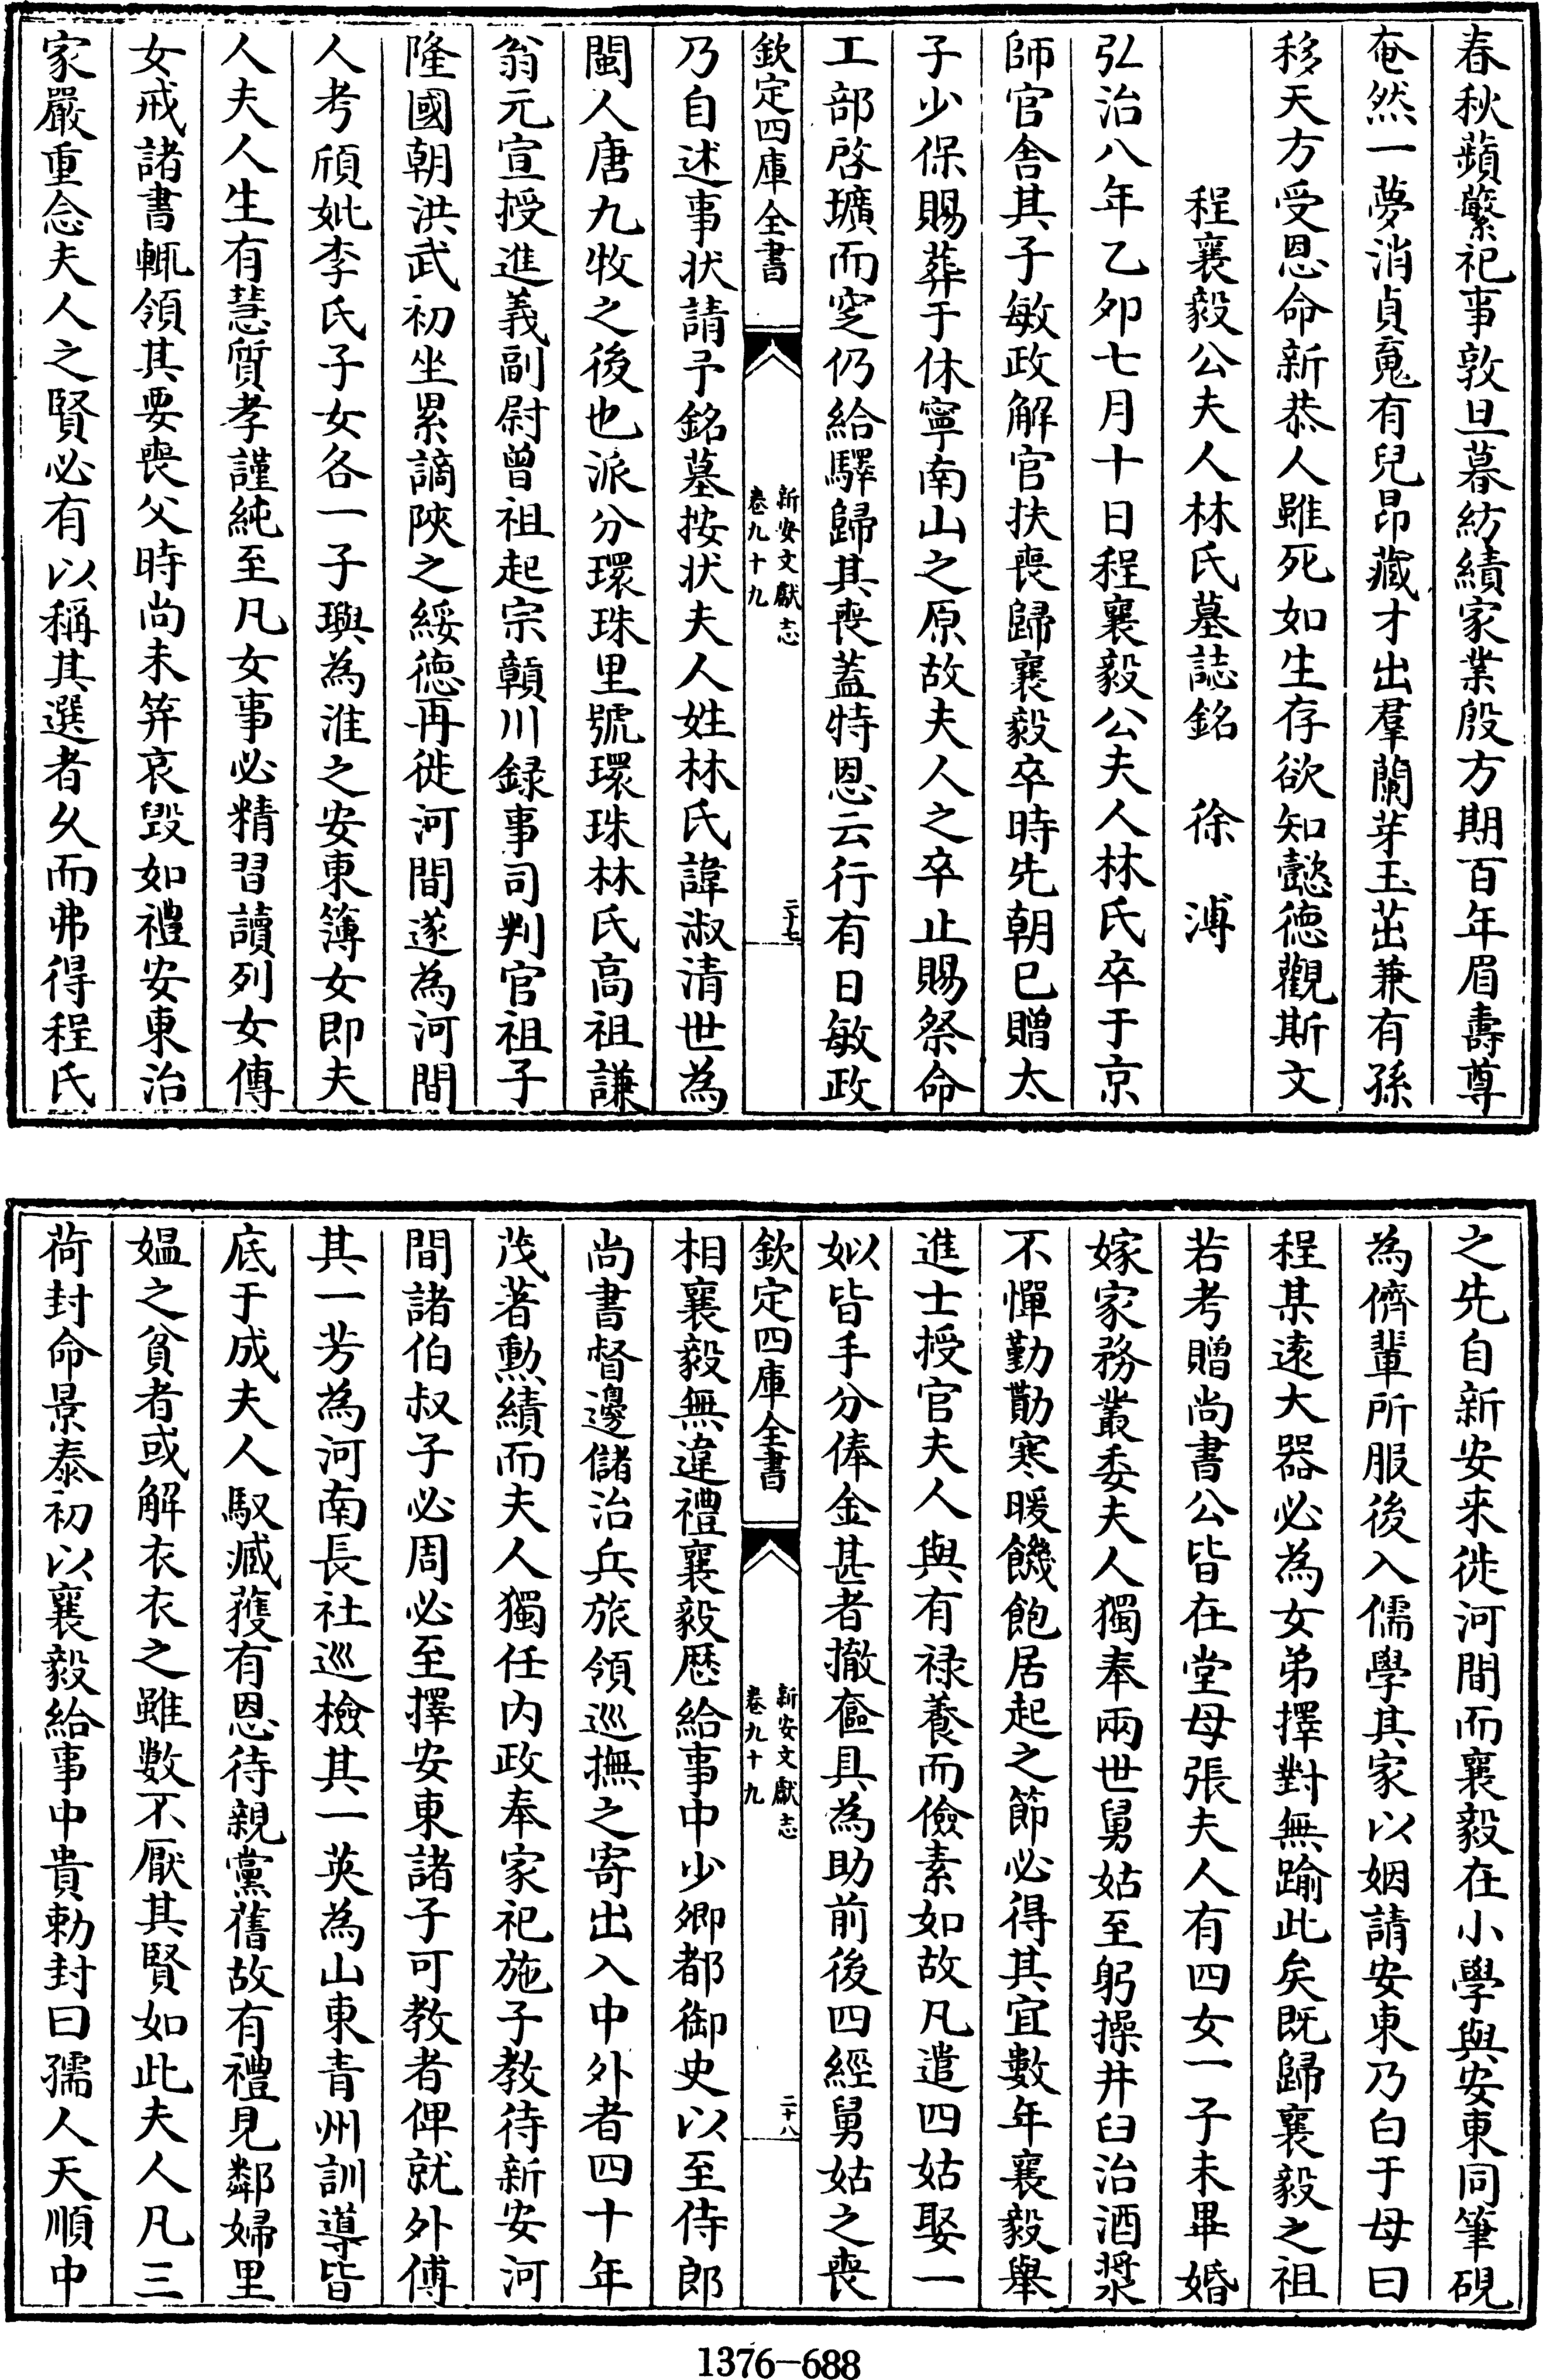 春秋蘋蘩祀事敦旦暮紡績家業殷方期百年眉壽尊
奄然一夢消貞䰟有兒昂藏才出羣蘭芽玉茁兼有孫
移天方受恩命新恭人雖死如生存欲知懿德觀斯文
程襄毅公夫人林氏墓誌銘　徐　溥
弘治八年乙夘七月十日程襄毅公夫人林氏卒于京
師官舎其子敏政解官扶喪歸襄毅卒時先朝已贈太
子少保賜葬于休寧南山之原故夫人之卒止賜祭命
工部啓壙而窆仍給驛歸其喪蓋特恩云行有日敏政
欽定四庫全書
新安文獻志
卷九十九
二十七
乃自述事状請予銘墓按状夫人姓林氏諱淑清世為
閩人唐九牧之後也派分環珠里號環珠林氏高祖謙
翁元宣授進義副尉曾祖起宗贑川録事司判官祖子
隆國朝洪武初坐累謫陜之綏徳再徙河間遂為河間
人考頎妣李氏子女各一子璵為淮之安東簿女即夫
人夫人生有慧質孝謹純至凡女事必精習讀列女傳
女戒諸書輒領其要喪父時尚未筓哀毁如禮安東治
家嚴重念夫人之賢必有以稱其選者乆而弗得程氏
之先自新安来徙河間而襄毅在小學與安東同筆硯
為儕輩所服後入儒學其家以姻請安東乃白于母曰
程某遠大器必為女弟擇對無踰此矣既歸襄毅之祖
若考贈尚書公皆在堂母張夫人有四女一子未畢婚
嫁家務叢委夫人獨奉兩世舅姑至躬操井臼治酒漿
不憚勤勩寒暖饑飽居起之節必得其宜數年襄毅舉
進士授官夫人與有禄養而儉素如故凡遣四姑娶一
姒皆手分俸金甚者撤奩具為助前後四經舅姑之喪
欽定四庫全書
新安文獻志
卷九十九
二十八
相襄毅無違禮襄毅厯給事中少卿都御史以至侍郎
尚書督邊儲治兵旅領巡撫之寄出入中外者四十年
茂著勲績而夫人獨任内政奉家祀施子教待新安河
間諸伯叔子必周必至擇安東諸子可教者俾就外傅
其一芳為河南長社巡檢其一英為山東青州訓導皆
底于成夫人馭臧獲有恩待親黨舊故有禮見鄰婦里
媼之貧者或解衣衣之雖數不厭其賢如此夫人凡三
荷封命景泰初以襄毅給事中貴勅封曰孺人天順中
1376-688